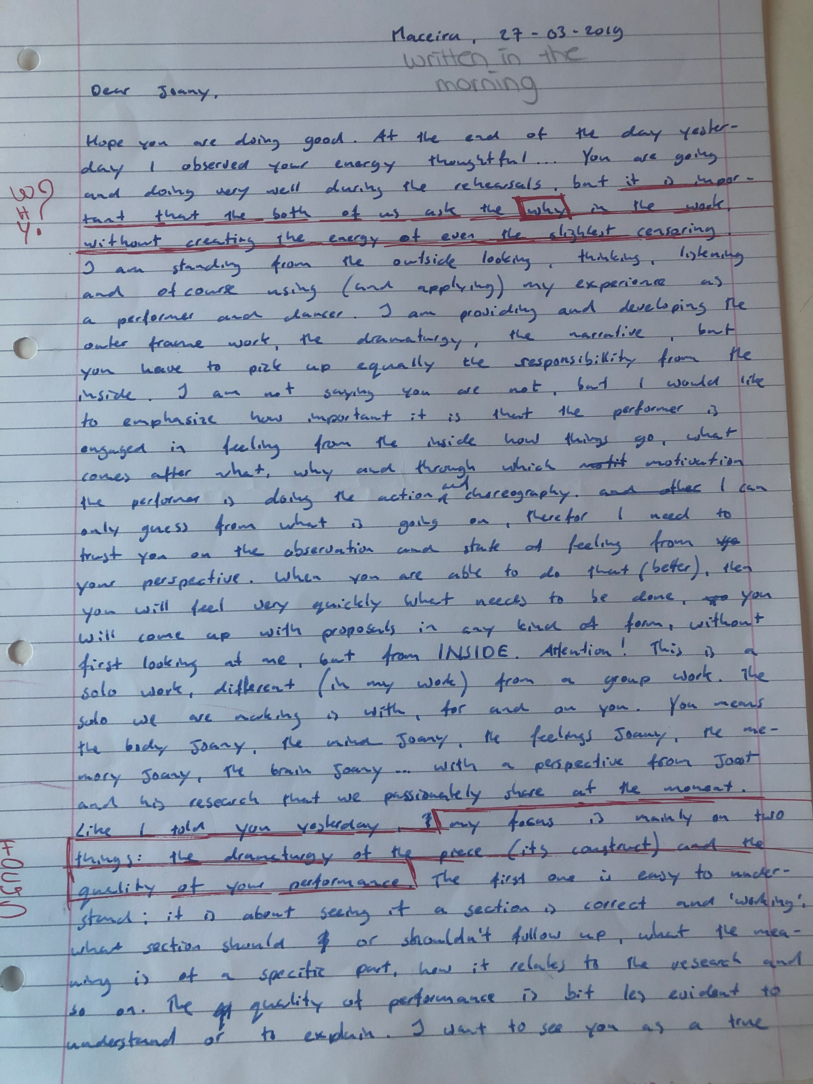 Maceira, 27-03-2019
written in the
morning
Dear Joany,
Hope you are doing good. At the end of the day yester-
day I observed your energy thoughtful... You are going
and doing very well during the rehearsals, but it is impor-
tant that the both of us ask the why in the work,
without creating the energy of even the slighest censoring.
WHY?
I am standing from the outside looking, thinking, listening
and of course using (and applying) my experience as
a performer and dancer. I am providing and developing the
outer frame work, the dramaturgy, the narrative, but
you have to pick up equally the responsibility from the
inside. I am not saying you are not, but I would like
to emphasize how important it is that the performer is
engaged in feeling from the inside how things go, what
comes after what, why and through which motivation
the performer is doing the action and choreography. and other I can
only guess from what is going on, therefor I need to
trust you on the observation and state of feeling from
your perspective. When you are able to do that (better), then
you will feel very quickly what needs to be done, you
will come up with proposals in any kind of form, without
first looking at me, but from INSIDE. Attention! This is a
solo work, different (in my work) from a group work. The
solo we are making is with, for and on you. You means
the body Joany, the mind Joany, the feelings Joany, the me-
mory Joany, the brain Joany... with a perspective from Joost
and his research that we passionately share at the moment.
Like I told you yesterday, my focus is mainly on two
things: the dramaturgy of the piece (its construct) and the
quality of your performance. The first one is easy to under-
FOCUS
stand; it is about seeing if a section is correct and 'working',
what section should or shouldn't follow up, what the mea-
ning is of a specific part, how it relates to the research and
so on. The quality of performance is bit les evident to
understand or to explain. I want to see you as a true